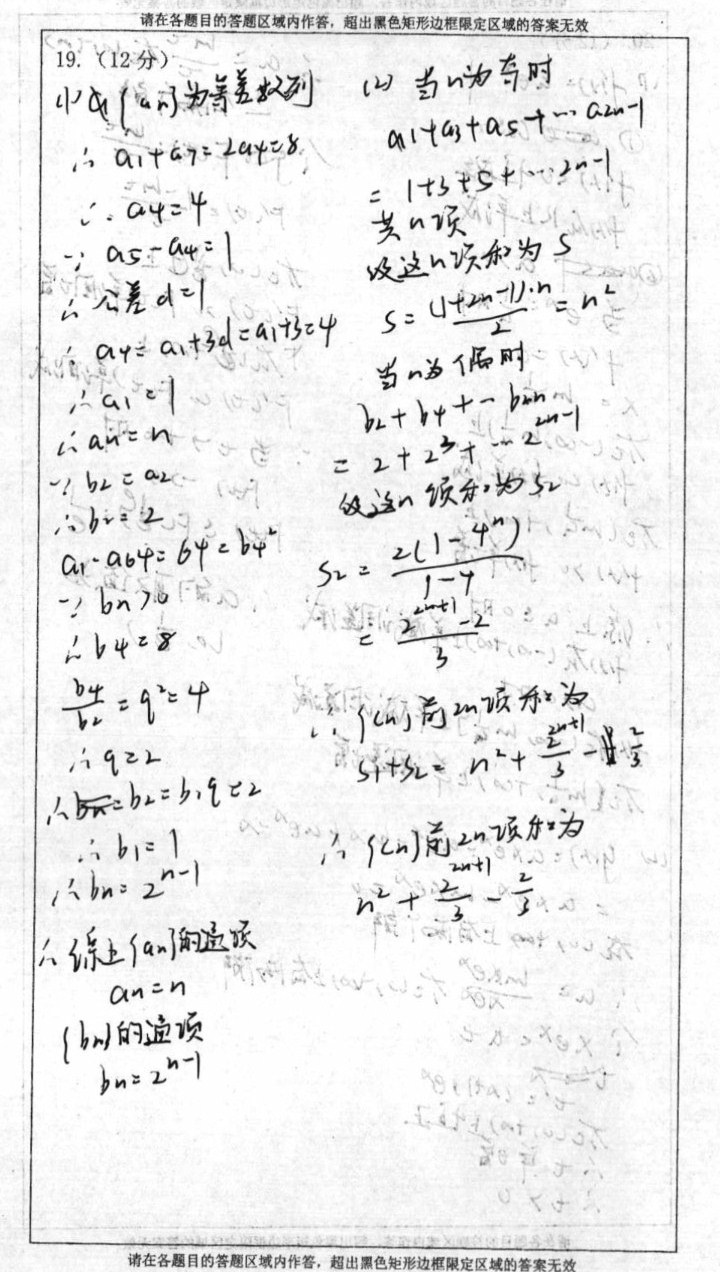 请在各题目的答题区域内作答，超出黑色矩形边框限定区域的答案无效
19.（12分）
(1) {an}为等差数列
∴ a1+a7=2a4=8
∴ a4=4
∵ a5-a4=1
∴ 公差d=1
∴ a4=a1+3d=a1+3=4
∴ a1=1
∴ an=n
∵ b2=a2
∴ b2=2
a1·a64=64=b4²
∵ bn>0
∴ b4=8
b4/b2=q²=4
∴ q=2
∴ b2=b1q=2
∴ b1=1
∴ bn=2^(n-1)
∴ 综上{an}的通项
an=n
{bn}的通项
bn=2^(n-1)
(2) 当n为奇时
a1+a3+a5+…a2n-1
=1+3+5+…2n-1
共n项
设这n项和为S
S=(1+2n-1)·n/2=n²
当n为偶时
b2+b4+…b2n
=2+2³+…2^(2n-1)
设这n项和为S2
S2=2(1-4^n)/(1-4)
=(2^(2n+1)-2)/3
∴ {cn}前2n项和为
S1+S2=n²+2^(2n+1)/3-2/3
∴ {cn}前2n项和为
n²+2^(2n+1)/3-2/3
请在各题目的答题区域内作答，超出黑色矩形边框限定区域的答案无效